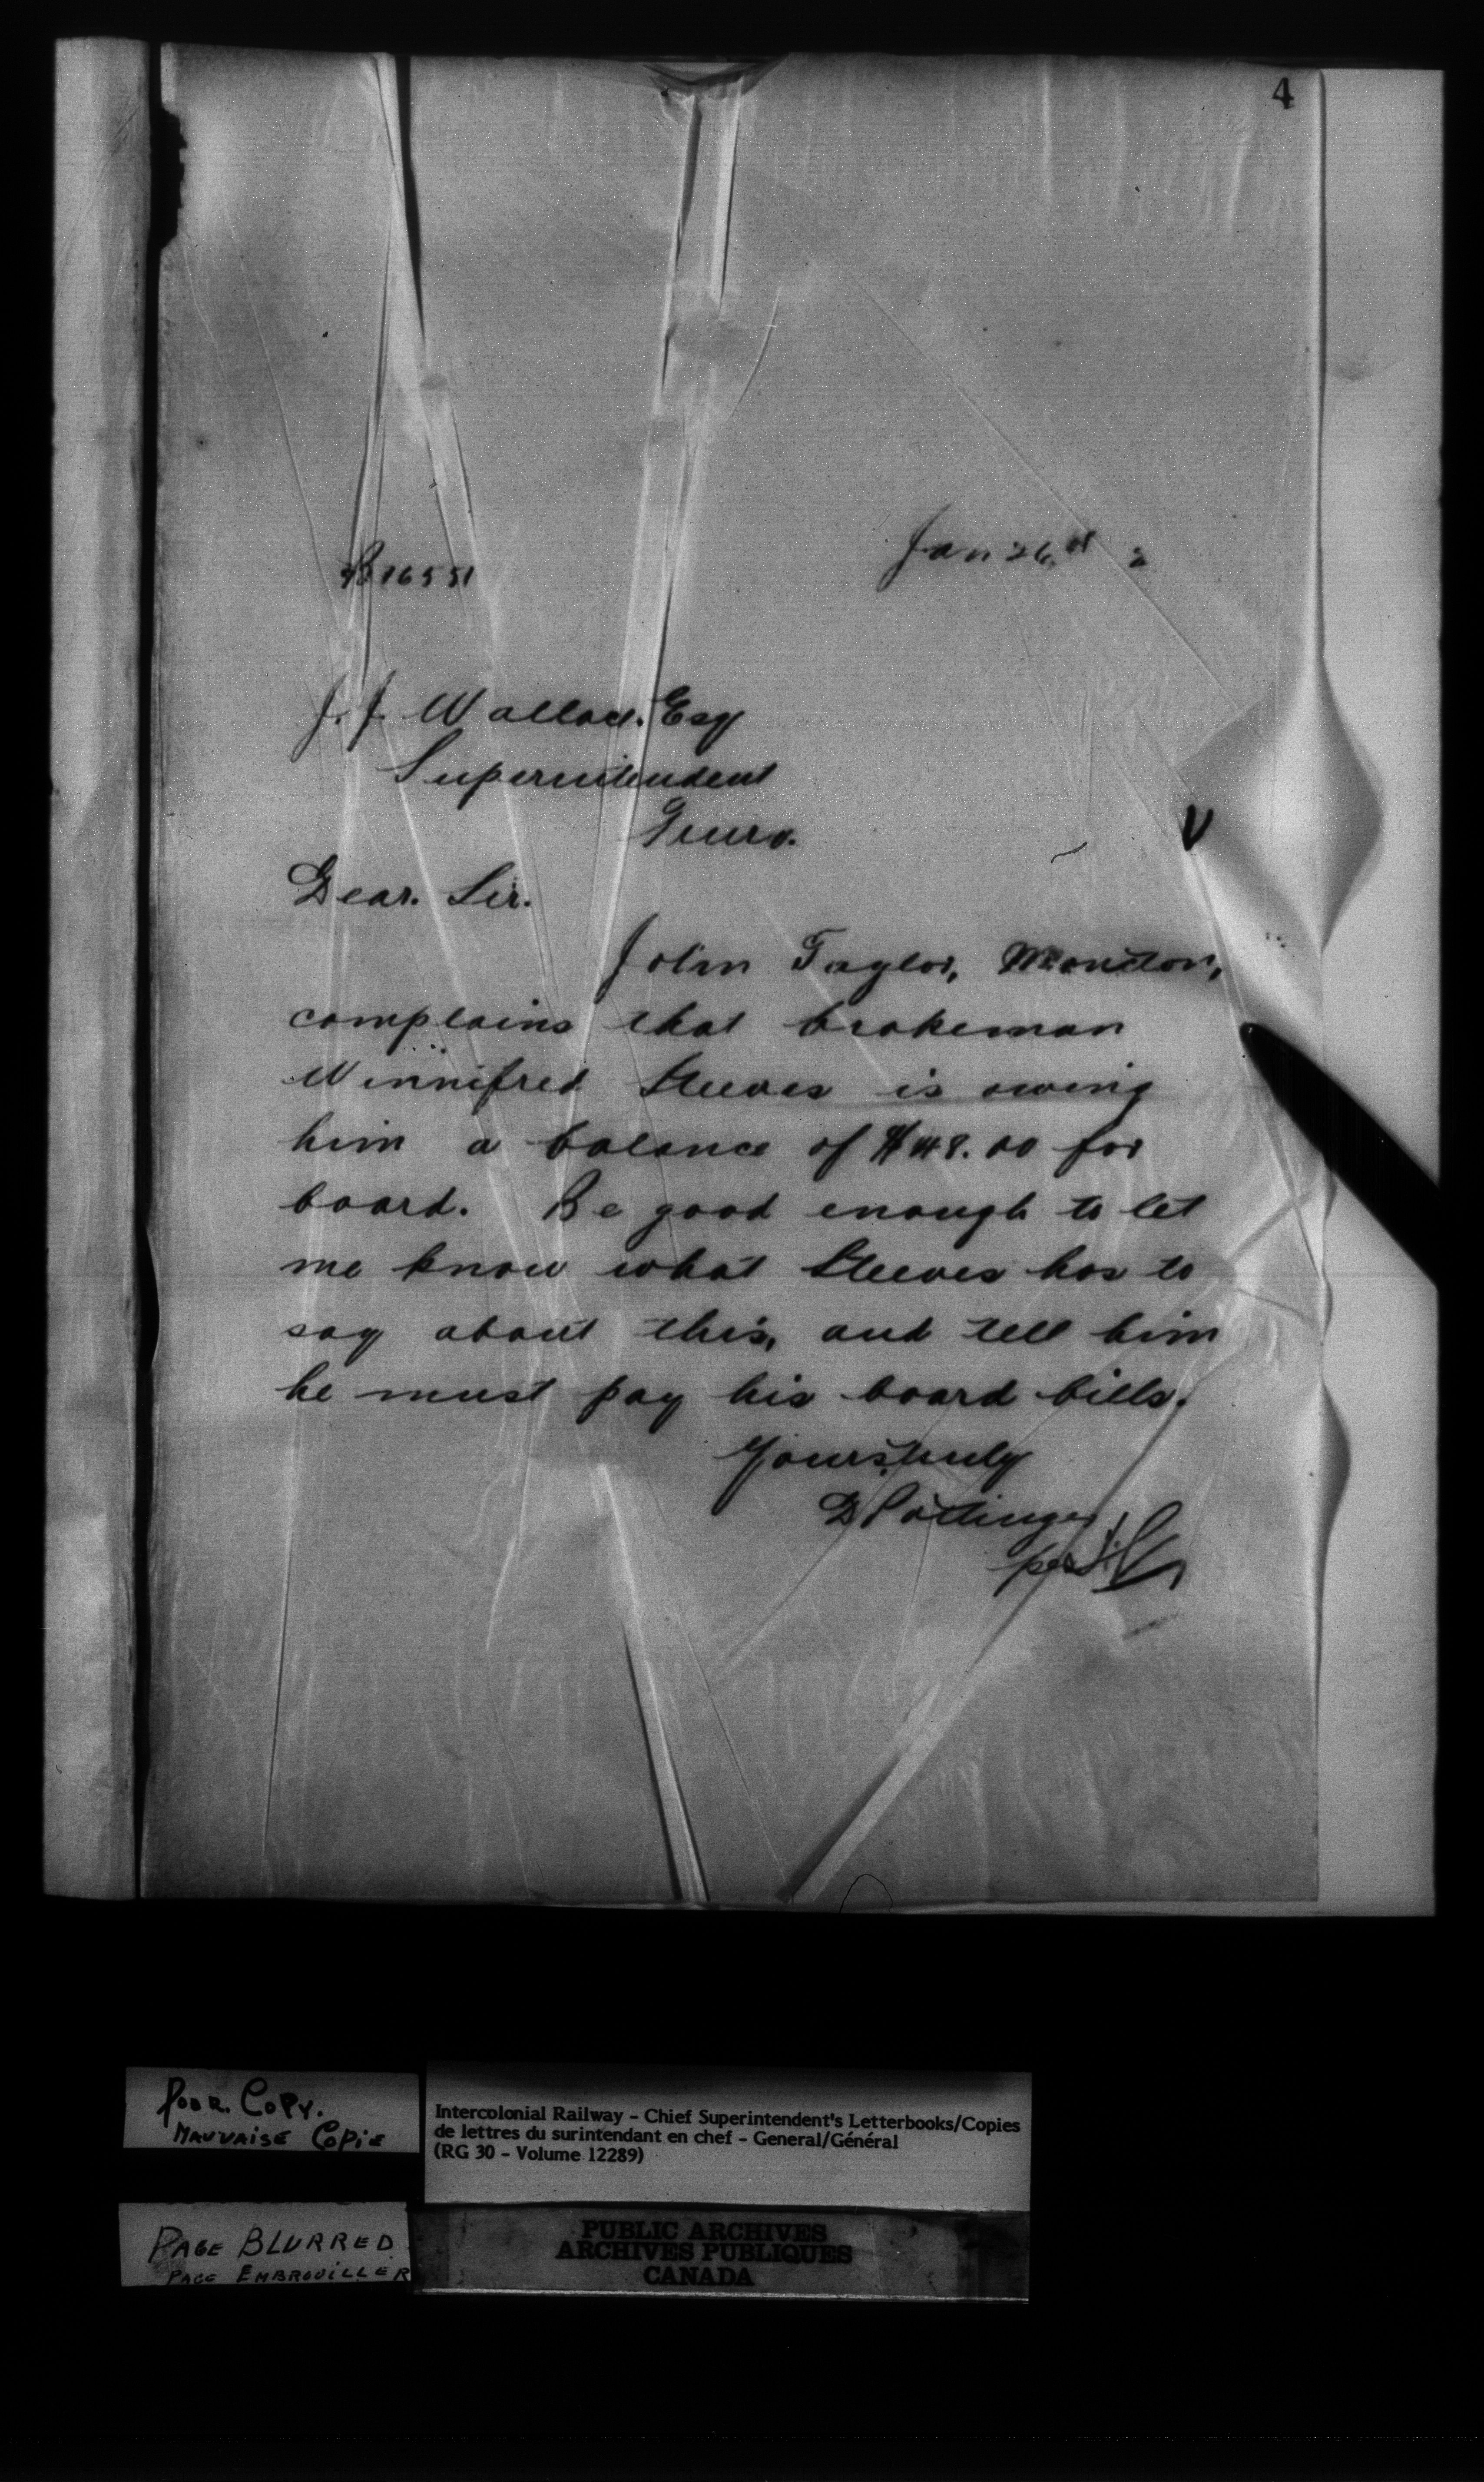 4
Jan 26th 2
16551
J. J. Wallace. Esq
Superintendent
Truro.
Dear. Sir.
John Taylor, Moncton,
complains that brakeman
Winnifred Steeves is owing
him a balance of $48.00 for
board. Be good enough to let
me know what Steeves has to
say about this, and tell him
he must pay his board bills.
Yours truly
D Pottinger
per
Poor. Copy.
Mauvaise Copie
Intercolonial Railway - Chief Superintendent's Letterbooks/Copies
de lettres du surintendant en chef - General/Général
(RG 30 - Volume 12289)
Page Blurred
Page Embrouiller
PUBLIC ARCHIVES
ARCHIVES PUBLIQUES
CANADA